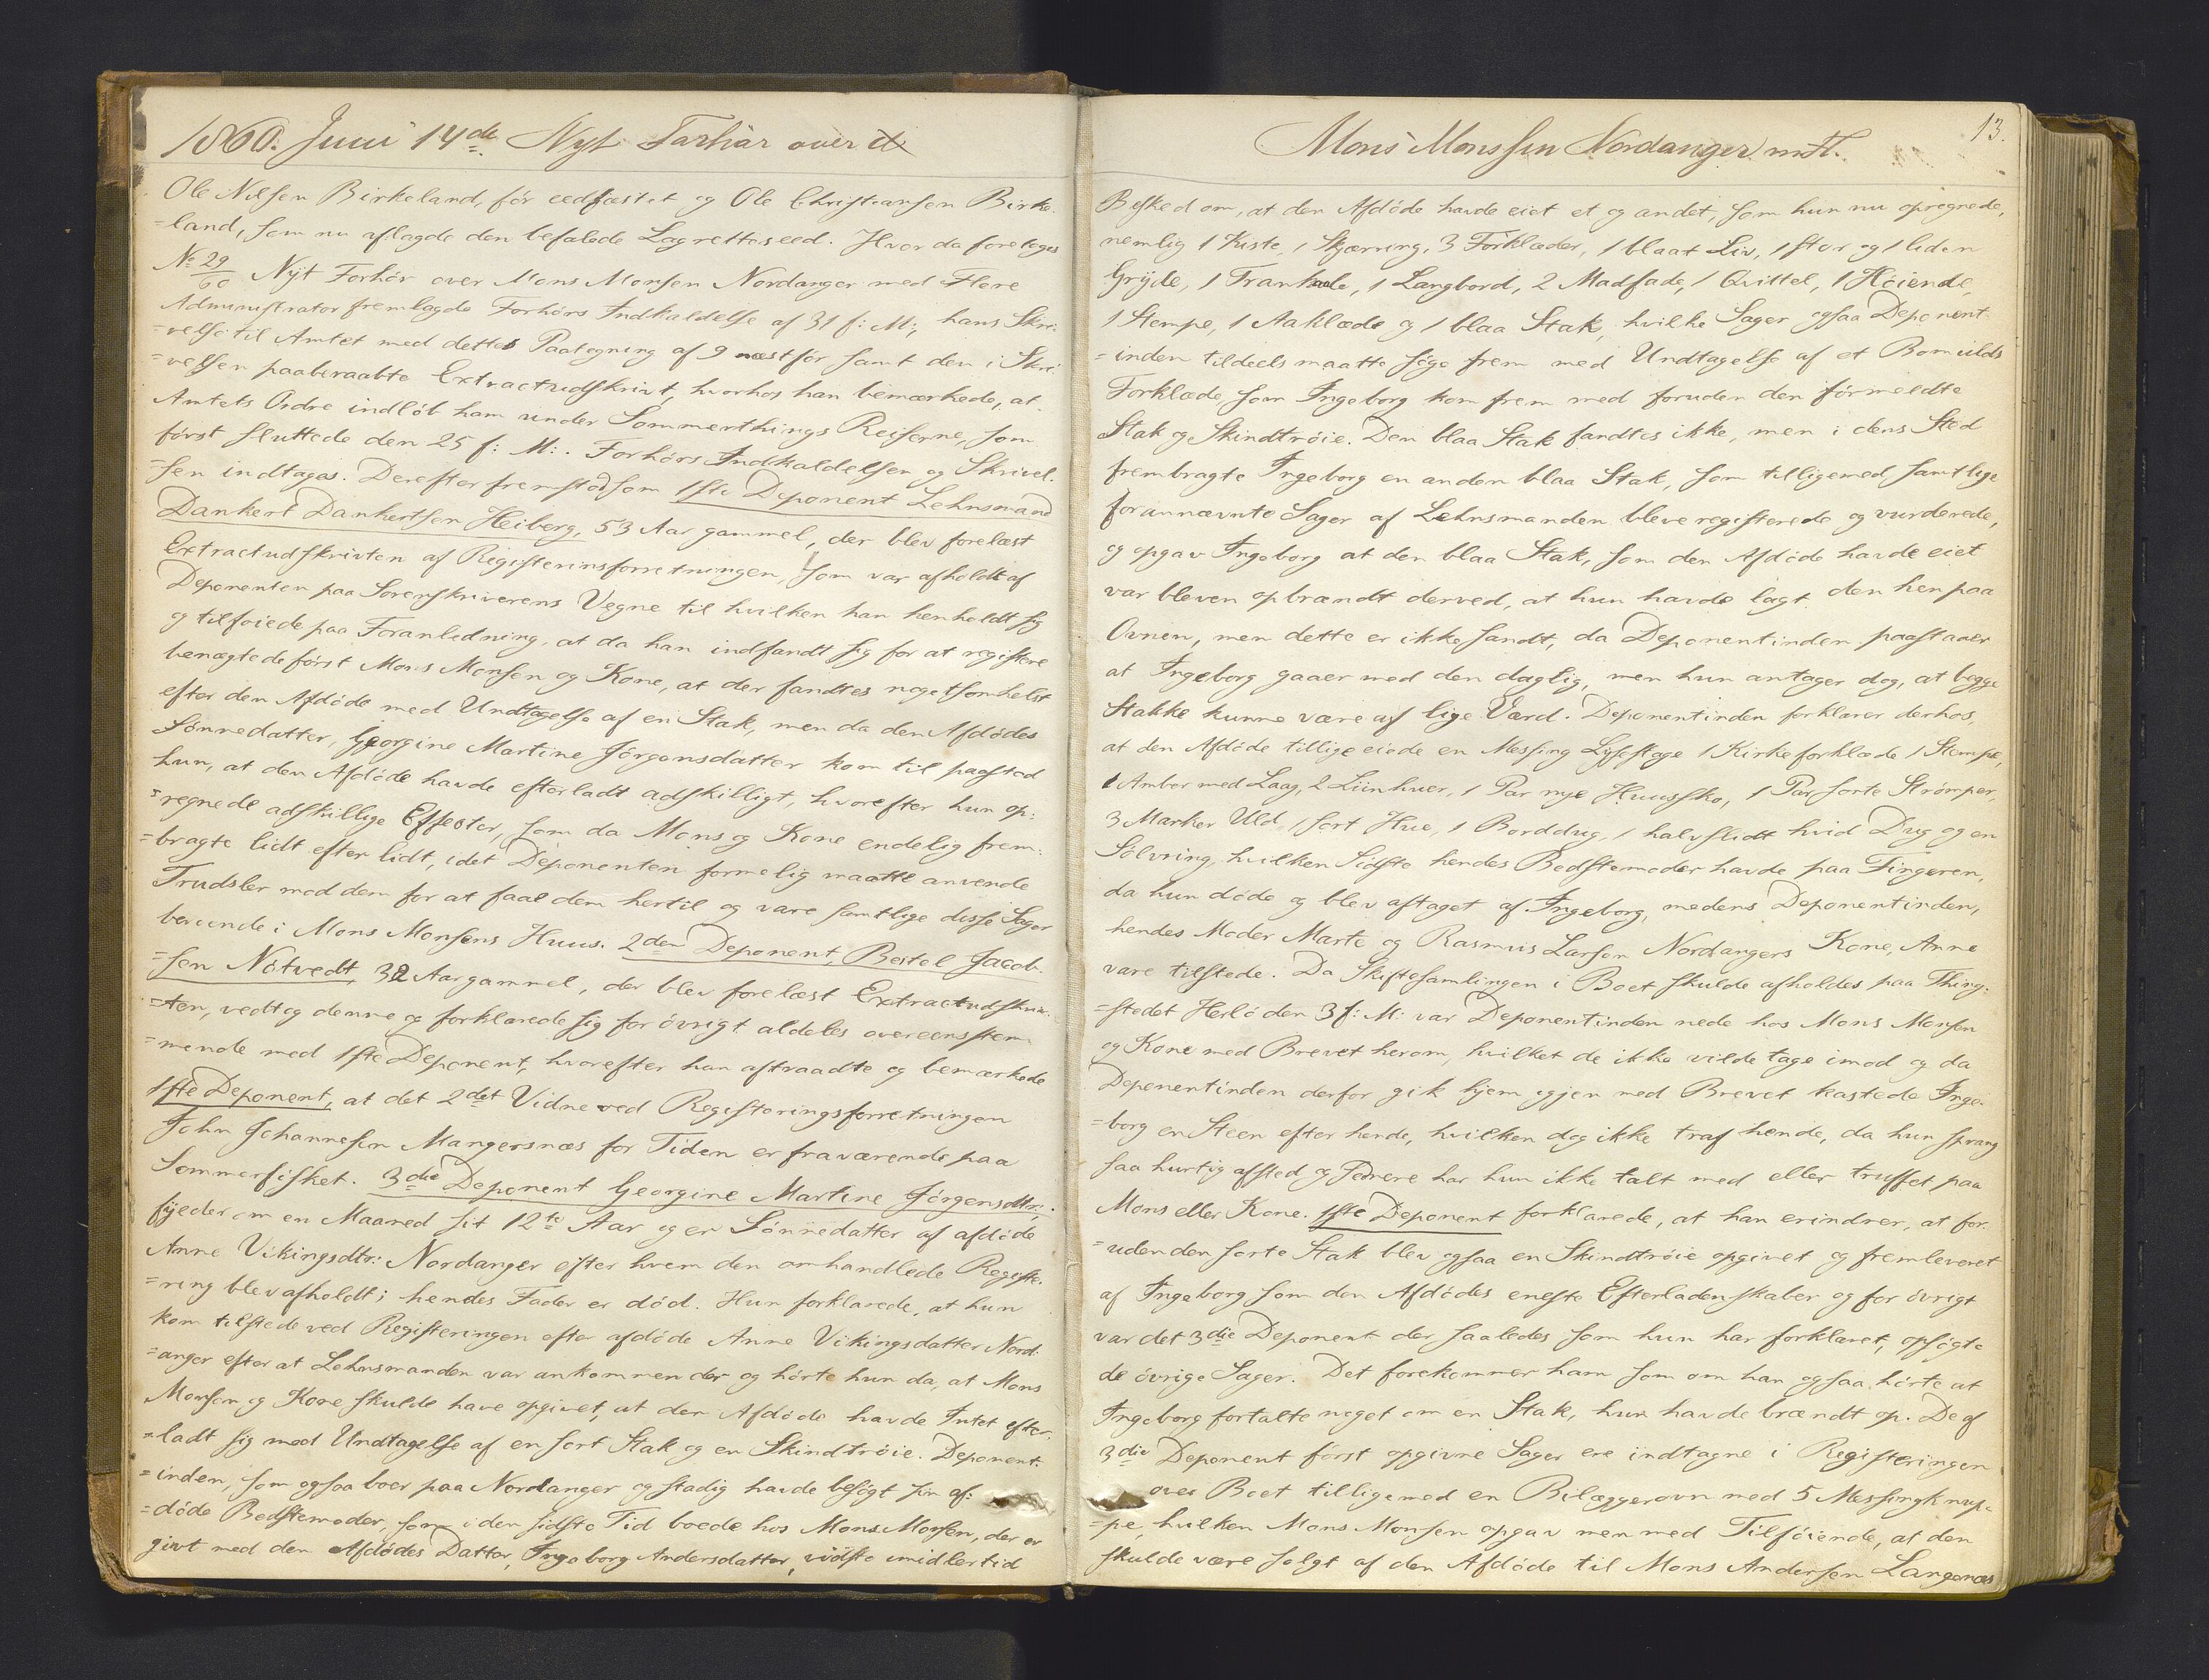 1860. Juni 14de Nyt Forhør over
Ole Nilsen Birkeland, før eedfæstet og Ole Christiansen Birke-
=land, som nu aflagde den befalede Lagretteseed. Hvor da foretoges
No 29/60 Nyt Forhör over Mons Monsen Nordanger med Flere
Administrator fremlagde Forhörs Indkaldelse af 31 f: M:, hans Skri-
=velse til Amtet med dettes Paategning af 9 næstfør samt den i Skri-
=velsen paaberaabte Extractudskrivt, hvorhos han bemærkede, at
Amtets Ordre indløb ham under Sommerthings Reiserne, som
först sluttede den 25 f: M:. Forhörs Indkaldelsen og Skrivel-
=sen indtages. Derefter fremstod som 1ste Deponent Lehnsmand
Dankert Dankertsen Heiberg, 53 Aar gammel, der blev forelæst
Extractudskrivten af Registerinsforretningen, som var afholdt af
Deponenten paa Sorenskriverens Vegne til hvilken han henholdt sig
og tilföiede paa Foranledning, at da han indfandt sig for at registere
benægtede först Mons Monsen og Kone, at der fandtes nogetsomhelst
efter den Afdöde med Undtagelse af en Stak, men da den Afdödes
Sönnedatter, Georgine Martine Jörgensdatter kom til paastod
hun, at den Afdöde havde efterladt adskilligt, hvorefter hun op:
=regnede adskillige Effecter, som da Mons og Kone endelig frem:
=bragte lidt efter lidt, idet Deponenten formelig maatte anvende
Trudsler mod dem for at faae dem hertil og vare samtlige disse Sager
beroende i Mons Monsens Huus. 2den Deponent Bertel Jacob-
=sen Nötvedt, 32 Aar gammel, der blev forelæst Extractudskriv-
=ten, vedtog denne og forklarede sig for övrigt aldeles overeensstem-
=mende med 1ste Deponent, hvorefter han aftraadte og bemærkede
1ste Deponent, at det 2det Vidne ved Registeringsforretningen
John Johannesen Mangersnæs for Tiden er fraværende paa
Sommerfisket. 3die Deponent Georgine Martine Jörgensdtr:
fylder om en Maaned sit 12te Aar og er Sönnedatter af afdöde
Anne Vikingsdtr: Nordanger efter hvem den omhandlede Registe-
=ring blev afholdt; hendes Fader er död. Hun forklarede, at hun
kom tilstede ved Registeringen efter afdöde Anne Vikingsdatter Nord-
=anger efter at Lehnsmanden var ankommen der og hörte hun da, at Mons
Monsen og Kone skulde have opgivet, at den Afdöde havde Intet efter-
=ladt sig med Undtagelse af en sort Stak og en Skindtröie. Deponent-
=inden, som ogsaa boer paa Nordanger og stadig havde besögt sin af-
=döde Bedstemoder, som i den sidste Tid boede hos Mons Monsen, der er
givt med den Afdödes Datter, Ingeborg Andersdatter, vidste imidlertid
Mons Monssen Nordanger m fl.
13.
Besked om, at den Afdöde havde eiet et og andet, som hun nu opregnede,
nemlig 1 Kiste, 1 Skjærring, 3 Forklæder, 1 blaat Liv, 1 stor og 1 liden
Gryde, 1 Trankole, 1 Langbord, 2 Madfade, 1 Qvittel, 1 Höiende,
1 Stempe, 1 Aaklæde og 1 blaa Stak, hvilke Sager ogsaa Deponent-
=inden tildeels maatte söge frem med Undtagelse af et Bomulds
Forklæde, som Ingeborg kom frem med foruden den förmeldte
Stak og Skindtröie. Den blaa Stak fandtes ikke, men i dens Sted
frembragte Ingeborg en anden blaa Stak, som tilligemed samtlige
forannævnte Sager af Lehnsmanden bleve registerede og vurderede,
og opgav Ingeborg at den blaa Stak, som den Afdöde havde eiet
var bleven opbrændt derved, at hun havde lagt den hen paa
Ovnen, men dette er ikke sandt, da Deponentinden paastaaer
at Ingeborg gaaer med den daglig, men hun antager dog, at begge
Stakke kunne være af lige Værd. Deponentinden forklarer derhos,
at den Afdöde tillige eiede en Messing Lysestage 1 Kirkeforklæde 1 Stempe,
1 Amber med Laag, 2 Liinhuer, 1 Par nye Huussko, 1 Par sorte Strömper,
3 Marker Uld, 1 sort Hue, 1 Borddug, 1 halvslidt hvid Dug og en
Sölvring, hvilken Sidste hendes Bedstemoder havde paa Fingeren,
da hun döde og blev aftaget af Ingeborg, medens Deponentinden,
hendes Moder Marte og Rasmus Larsen Nordangers Kone, Anne
vare tilstede. Da Skiftesamlingen i Boet skulde afholdes paa Thing-
=stedet Herlö den 3 f: M: var Deponentinden nede hos Mons Monsen
og Kone med Brevet herom, hvilket de ikke vilde tage imod og da
Deponentinden derfor gik hjem igjen med Brevet kastede Inge-
=borg en Steen efter hende, hvilken dog ikke traf hende, da hun sprang
saa hurtig afsted og senere har hun ikke talt med eller truffet paa
Mons eller Kone. 1ste Deponent forklarede, at han erindrer, at for-
=uden den sorte Stak blev ogsaa en Skindtröie opgivet og fremleveret
af Ingeborg som den Afdödes eneste Efterladenskaber og for övrigt
var det 3die Deponent der, saaledes som hun har forklaret, opsögte
de övrige Sager. Det forekommer ham som om han ogsaa hörte at
Ingeborg fortalte noget om en Stak, hun havde brændt op. De af
3die Deponent först opgivne Sager ere indtagne i Registeringen
over Boet tilligemed en Bilæggerovn med 5 Messingknap-
=pe, hvilken Mons Monsen opgav men med Tilföiende, at den
skulde være solgt af den Afdöde til Mons Andersen Langenæs